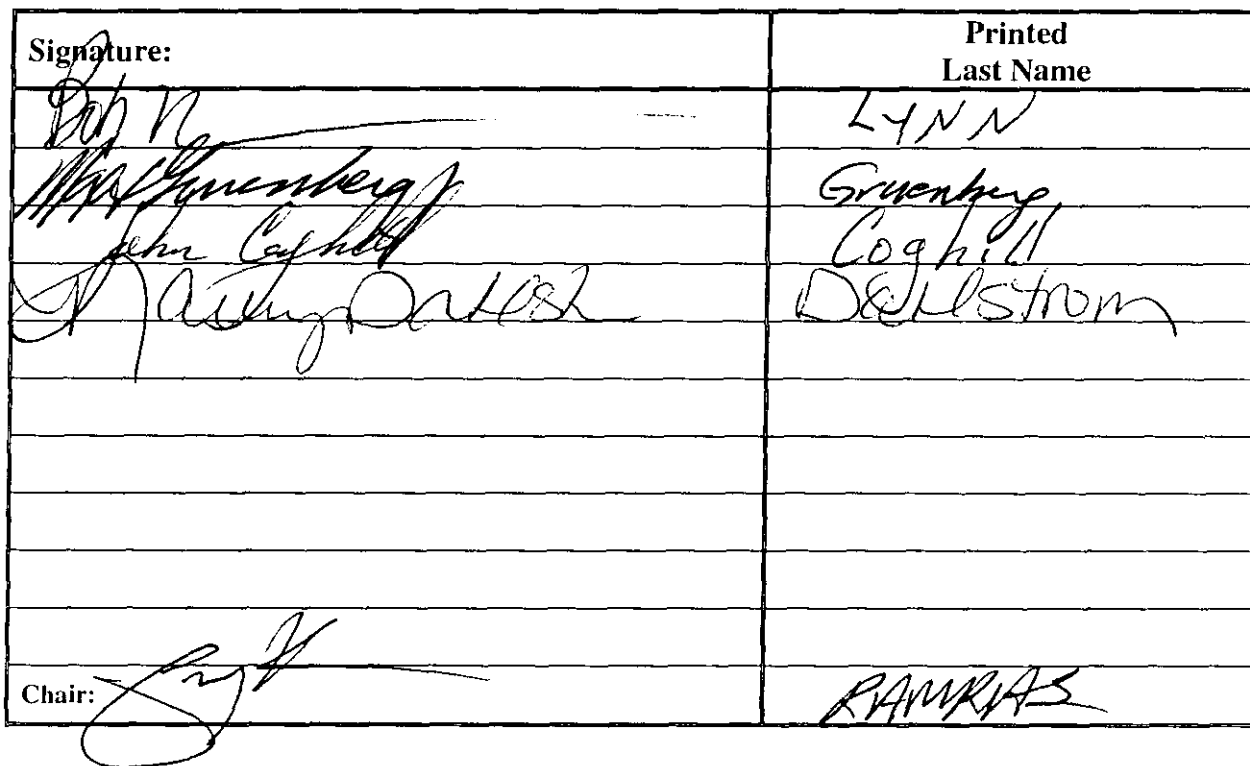 Signature: Printed
Last Name
Bob LYNN
Max Gruenberg Gruenberg
John Coghill Coghill
Nancy Dahlst Dahlstrom
Chair: RAMRAS